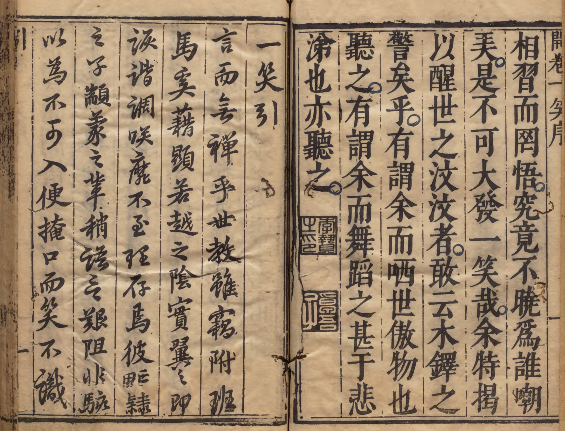 開卷一笑序
相習而罔悟究竟不曉爲誰嘲
弄是不可大發一笑哉余特揭
以醒世之汶汶者敢云木鐸之
警矣乎有謂余而哂世傲物也
聽之有謂余而舞蹈之甚于悲
涕也亦聽之
一笑引
言而無禪乎世教雖竊附班
馬奚藉顯若越之陰實翼之即
詼諧調咲靡不至理存焉彼
之子顓蒙之輩稍語言艱阻非駭
以為不可入便掩口而笑不識
引
一